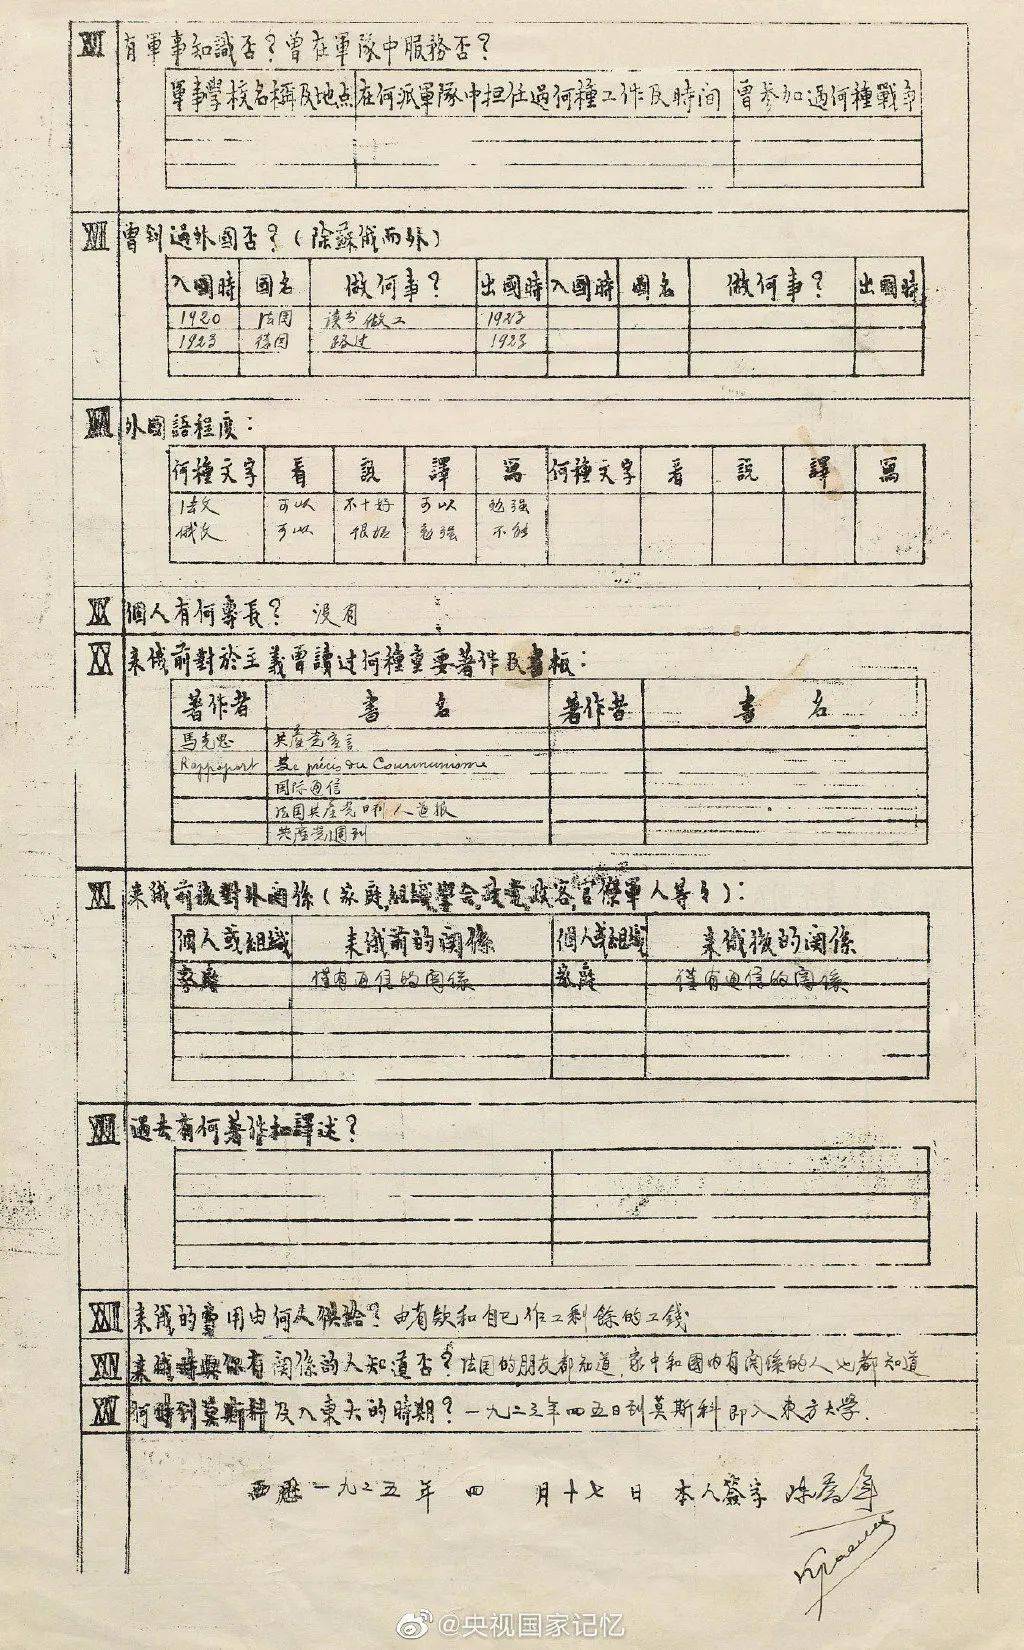 XVI 有軍事知識否？曾在軍隊中服務否？
軍事學校名稱及地点 在何派軍隊中担任過何種工作及時間 曾參加過何種戰爭
XVII 曾到過外國否？（除蘇俄而外）
入國時 國名 做何事？ 出國時 入國時 國名 做何事？ 出國時
1920 法国 读书做工 1923
1923 德国 路过 1923
XVIII 外國語程度：
何種文字 看 説 譯 寫 何種文字 看 説 譯 寫
法文 可以 不十好 可以 勉强
俄文 可以 很好 勉强 不能
XIX 個人有何專長？ 没有
XX 来俄前對於主義曾讀过何種重要著作及書板：
著作者 書名 著作者 書名
馬克思 共產党宣言
Rappoport précis du Communisme
国际通信
法国共產党 人道报
共產党週刊
XXI 来俄前後對外関係（家庭,組織,學会,政党,政客,官僚軍人等々）：
個人或組織 来俄前的関係 個人或組織 来俄後的関係
家庭 僅有通信的関係 家庭 僅有通信的関係
XXII 過去有何著作和譯述？
XXIII 来俄的費用由何人供給？ 由有欵和自己作工剩餘的工錢
XXIV 来俄時與你有関係的人知道否？ 法国的朋友都知道，家中和國内有関係的人也都知道
XXV 何時到莫斯科及入東大的時期？ 一九二三年四五日到莫斯科即入東方大学.
西歷一九二五年 四 月十七日 本人簽字 陈喬年
@央视国家记忆